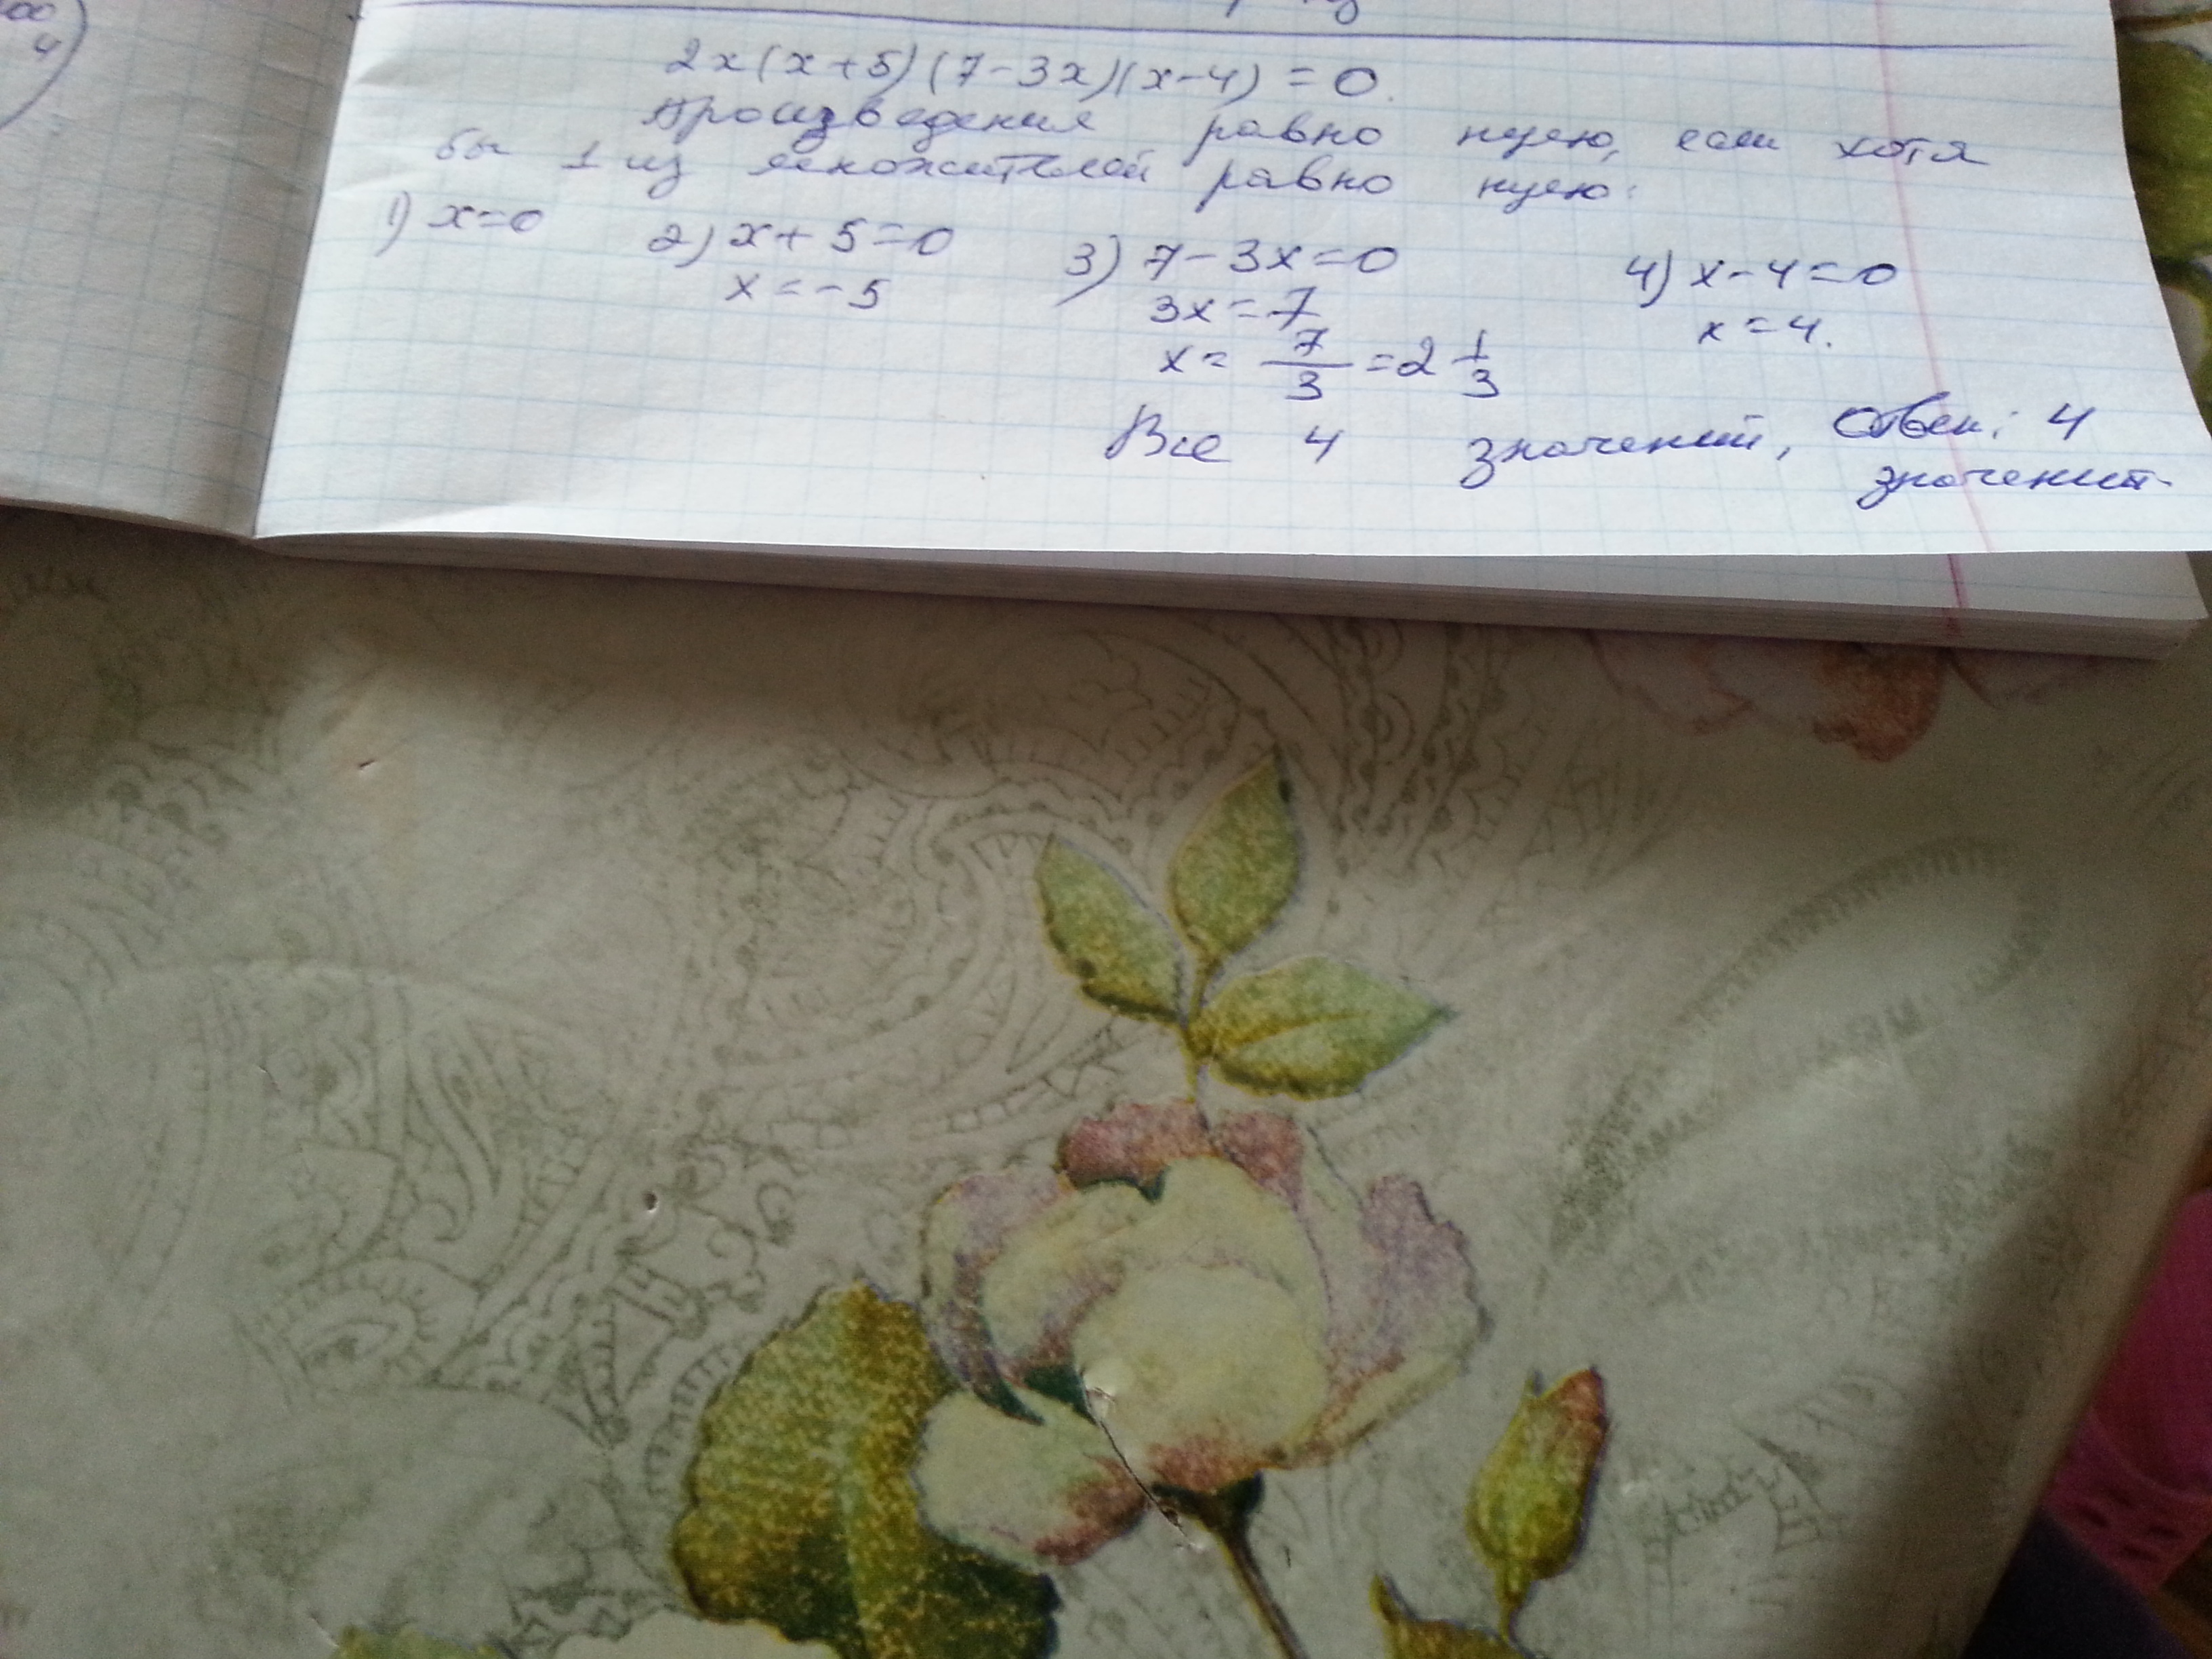 2x(x+5)(7-3x)(x-4)=0.
Произведения равно нулю, если хотя
бы 1 из множителей равно нулю:
1) x=0 2) x+5=0 3) 7-3x=0 4) x-4=0
x=-5 3x=7 x=4.
x= 7/3 =2 1/3
Все 4 значений, Ответ: 4
значения.